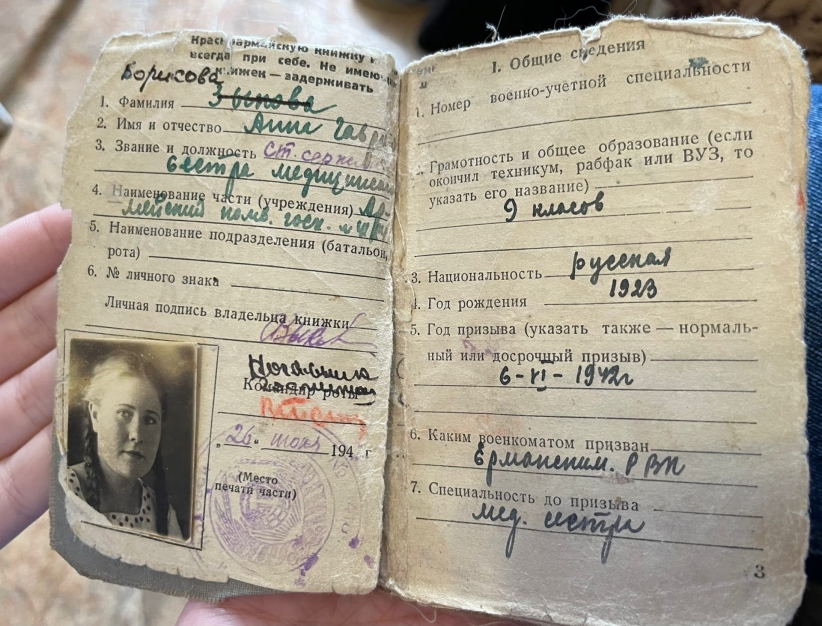 Красноармейскую книжку
всегда при себе. Не имею-
книжек — задерживать
Борисова
1. Фамилия Зыкова
2. Имя и отчество Анна
3. Звание и должность ст.
Сестра
4. Наименование части (учреждения)
5. Наименование подразделения (батальон,
рота)
6. № личного знака
Личная подпись владельца книжки
Командир роты
„26“ 194 г
(Место
печати части)
I. Общие сведения
1. Номер военно-учетной специальности
2. Грамотность и общее образование (если
окончил техникум, рабфак или ВУЗ, то
указать его название)
9 класов
3. Национальность русская
4. Год рождения 1923
5. Год призыва (указать также — нормаль-
ный или досрочный призыв)
6-VI-1942г
6. Каким военкоматом призван
РВК
7. Специальность до призыва
мед. сестра
3